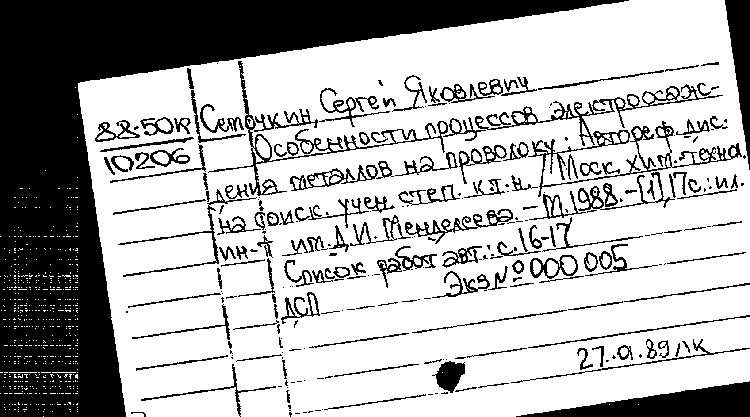 88-50К Сеточкин, Сергей Яковлевич
10206 Особенности процессов электроосаж-
дения металлов на проволоку: Автореф. дис.
на соиск. учен. степ. к.т.н. / Моск. хим.-техно.
ин-т им. Д.И. Менделеева. - М., 1988. - [1], 17с.: ил.
Список работ авт.: с. 16-17
ДСП Экз № 000 005
89 ЛК